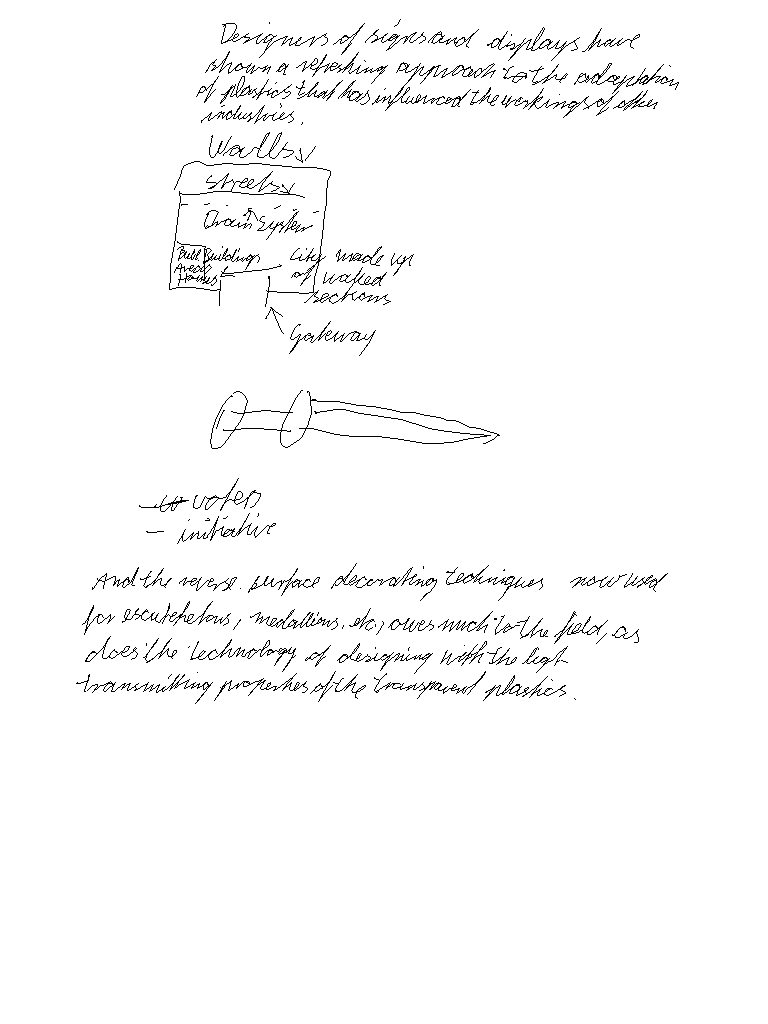 Designers of signs and displays have
shown a refreshing approach to the adaptation
of plastics that has influenced the workings of other
industries.
Walls
streets
Drain System
Built Buildings
Areas
Houses
City made up
of walled
sections
Gateway
- voters
- initiative
And the reverse. surface decorating techniques now used
for escutcheons, medallions. etc, owes much to the field, as
does the technology of designing with the light
transmitting properties of the transparent plastics.